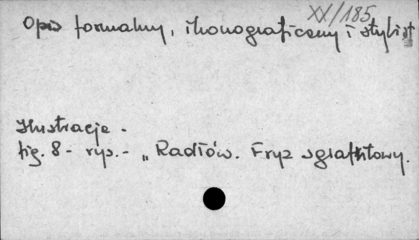 XX/185
Opis formalny, ikonograficzny i stylist
Ilustracje -
fig. 8 - rys. - „Radłów. Fryz sgraffitowy.